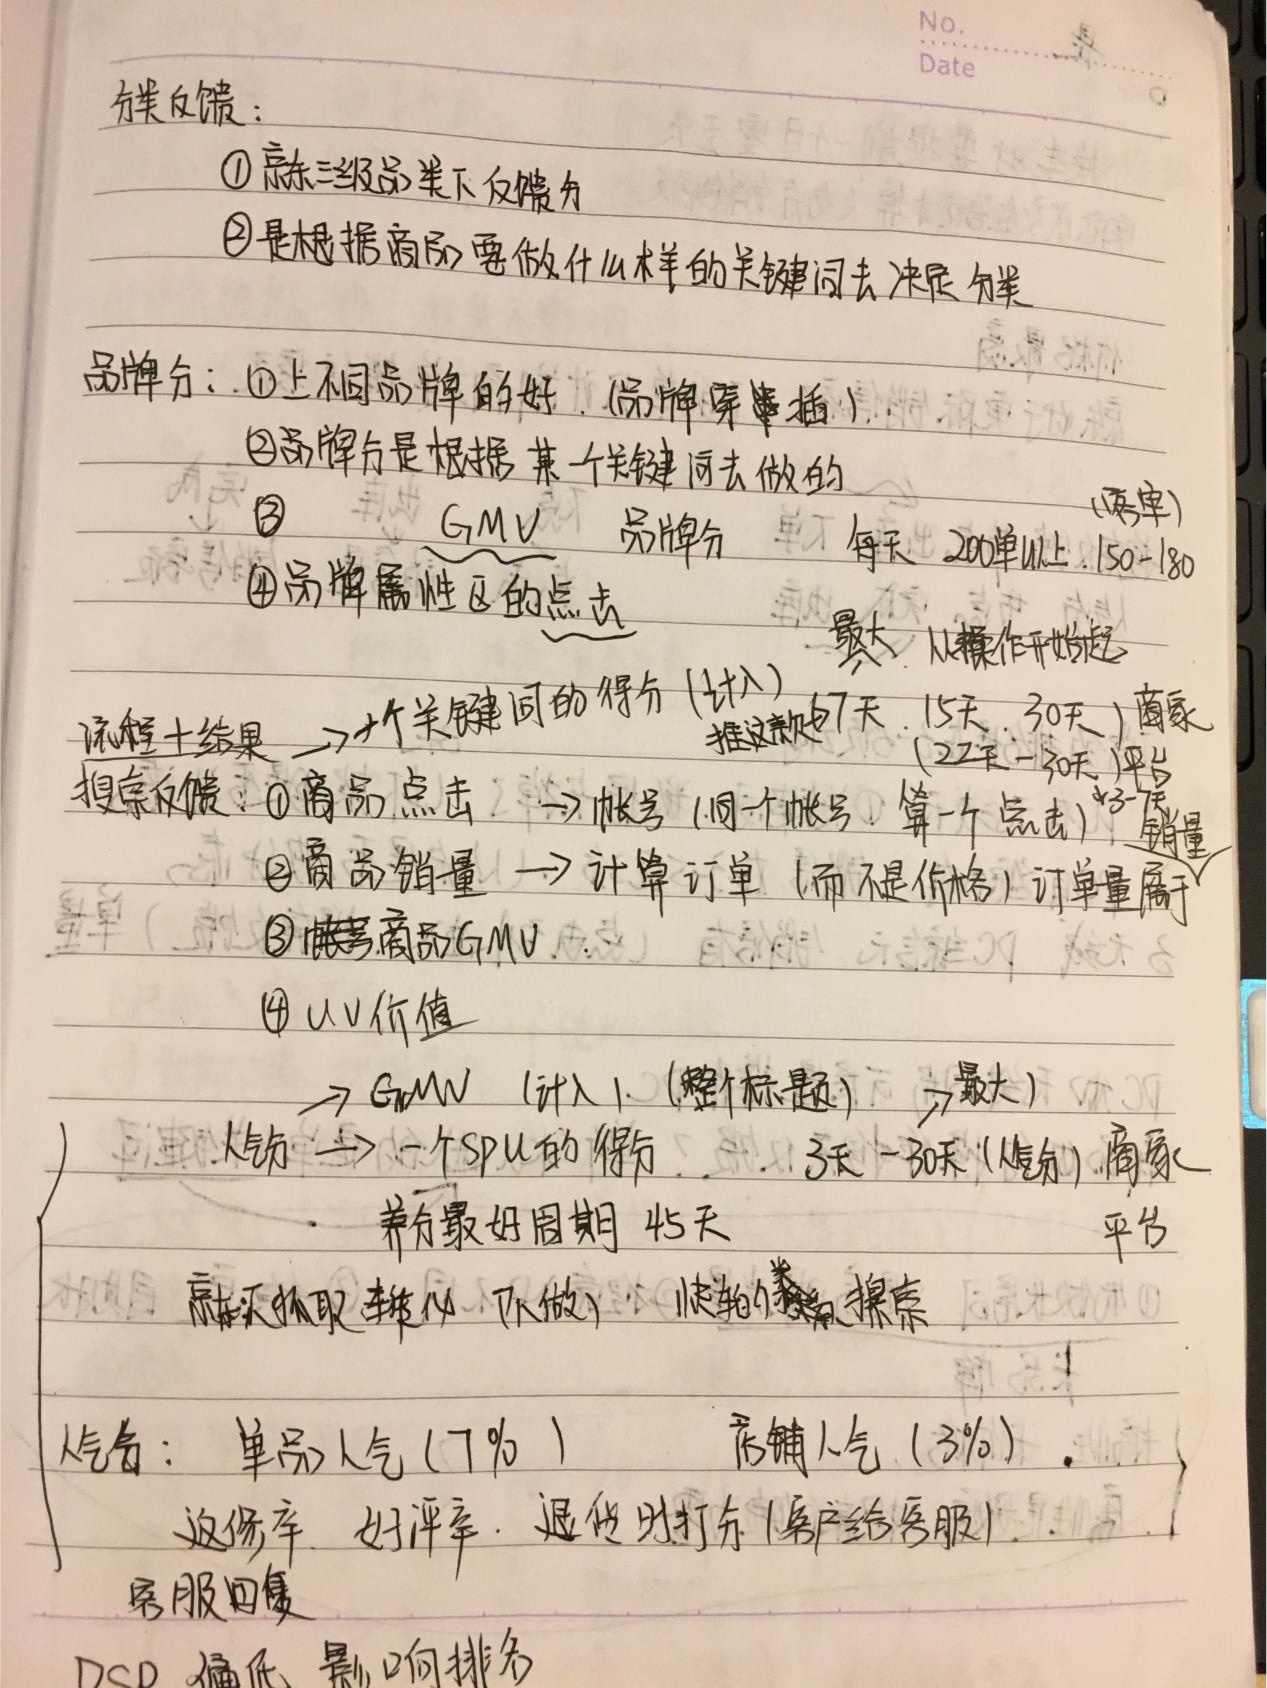 No.
Date
分类反馈：
①京东三级品类下反馈分
②是根据商品要做什么样的关键词去决定分类
品牌分：①上不同品牌的好.（品牌穿插）
②品牌分是根据某一个关键词去做的
（客单）
③ GMV 品牌分 每天 200单以上.150-180
④品牌属性区的点击
最大 从操作开始起
→一个关键词的得分（计入） 7天.15天.30天）商家
推这款
流程+结果
（22天-30天）平台
3-7天
搜索反馈：①商品点击 →帐号（同一个帐号.算一个点击）
销量
②商品销量 →计算订单（而不是价格）订单量属于
③商品GMV
④UV价值
→GMV（计入）.（整个标题） →最大）
人气分 →一个SPU的得分 3天-30天（人气分）.商家
养分最好周期 45天 平台
京东 抓取 （不做） 搜索
人气分： 单品人气（7%） 店铺人气（3%）.
返修率 好评率. 退货时打分（客户给客服）.
客服回复
DSR 偏低 影响排名